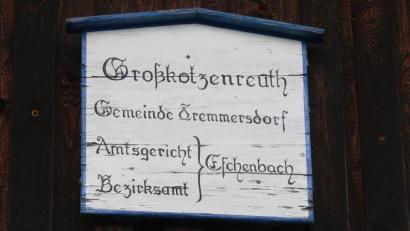 Großkotzenreuth
Gemeinde Tremmersdorf
Amtsgericht
Bezirksamt
Eschenbach